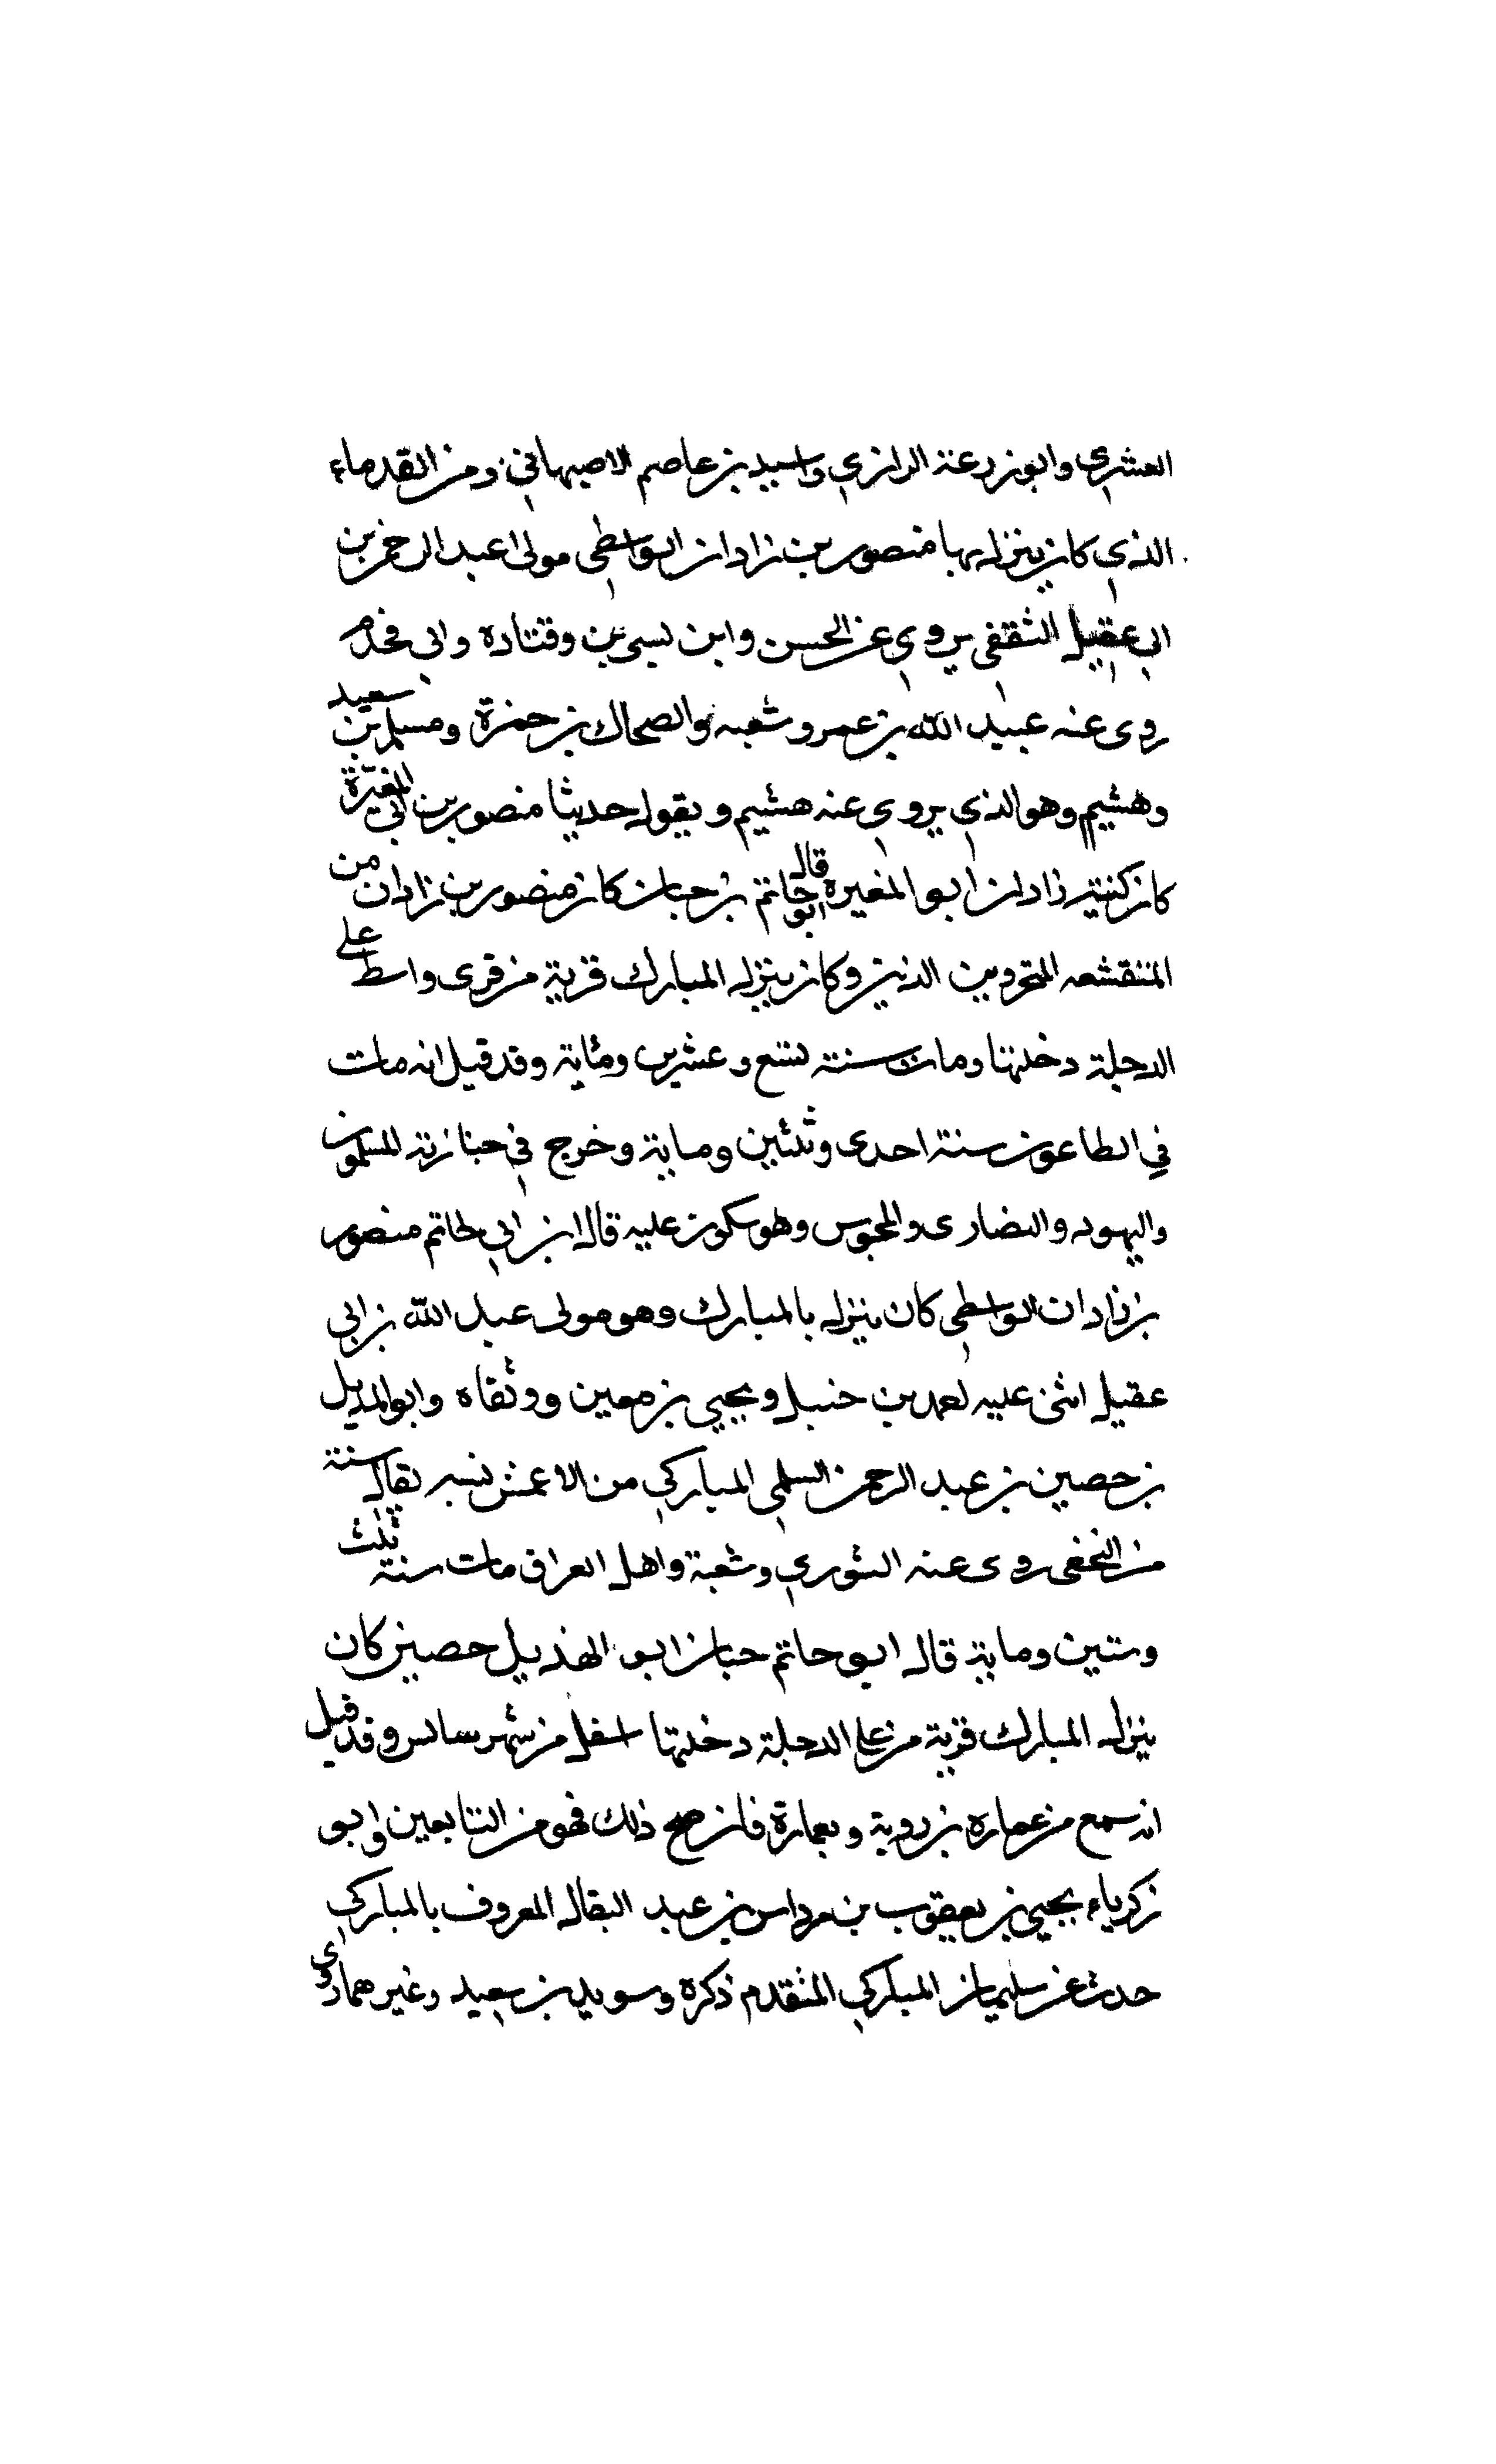 العشري وابو زرعة الرازي واسيد بن عاصم الاصبهاني ومن القدماء
الذي كان ينزل بها منصور بن زادان الواسطي مولى عبد الرحمن بن
ابي عقيل الثقفي يروي عن الحسن وابن سيرين وقتادة وابي محمد
روى عنه عبيد الله بن عمر وشعبه والضحاك بن حمزة ومسلم بن سعيد
وهشيم وهو الذي يروي عنه هشيم ويقول حدثنا منصور بن ابي المغيرة
كان كنيته زادان ابو المغيرة قال ابو حاتم بن حبان كان منصور بن زادان من
المتقشعه المتجردين الذين وكان ينزل المبارك قرية من قرى واسط على
الدجلة دخلتها ومات سنة تسع وعشرين ومائة وقد قيل انه مات
في الطاعون سنة احدى وثلثين وماية وخرج في جنازته المسلمون
واليهود والنصارى والمجوس وهو يبكون عليه قال ابن ابي حاتم منصور
بن زادان الواسطي كان ينزل بالمبارك وهو مولى عبد الله بن ابي
عقيل اثنى عليه احمد بن حنبل ويحيي بن معين ووثقاه وابو الهذيل
بن حصين بن عبد الرحمن السلمي المباركي من الاعمش نسبه يقال سنة
من النخعي روى عنه الثوري وشعبة واهل العراق مات سنة ثلث
وستين وماية قال ابو حاتم حبان ابو الهذيل حصين كان
ينزل المبارك قرية من على الدجلة دخلتها اسفل من شهر سابس وقد قيل
انه سمع من عماره بن روية وبعمارة فان صح ذلك فهو من التابعين وابو
زكرياء يحيي بن يعقوب بن مرداس بن عبد البقال المعروف بالمباركي
حدث عن سليمان المباركي المتقدم ذكره وسويد بن سعيد وغيرهما روى